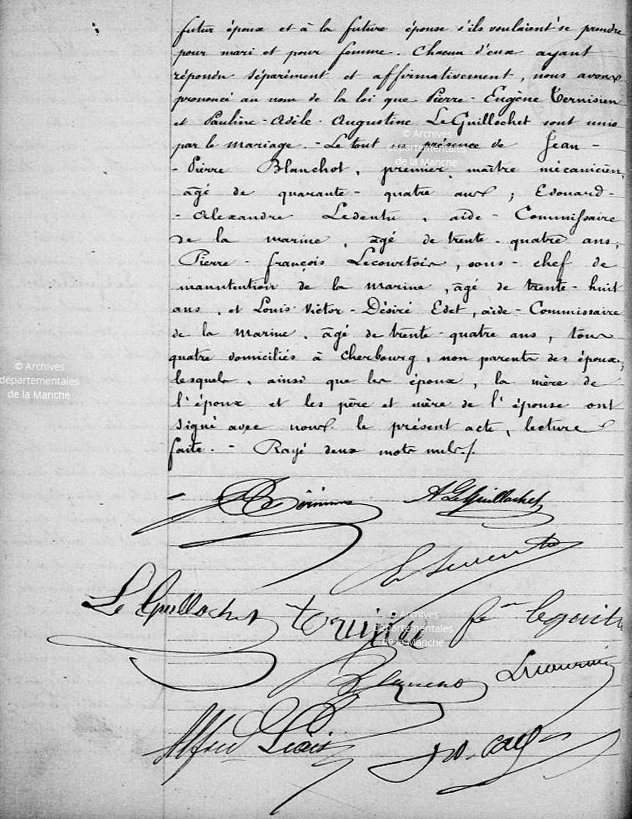 futur époux et à la future épouse s'ils voulaient se prendre
pour mari et pour femme. Chacun d'eux ayant
répondu séparément et affirmativement, nous avons
prononcé au nom de la loi que Pierre-Eugène Ternisien
et Pauline-Adèle-Augustine LeGuillochet sont unis
par le mariage. - Le tout en présence de Jean-
-Pierre Blanchot, premier maître mécanicien,
âgé de quarante-quatre ans, Edouard-
-Alexandre Ledentu, aide-Commissaire
de la marine, âgé de trente-quatre ans,
Pierre-François Lecourtois, sous-chef de
manutention de la marine, âgé de trente-huit
ans, et Louis-Victor-Désiré Edet, aide-Commissaire
de la Marine, âgé de trente-quatre ans, tous
quatre domiciliés à Cherbourg, non parents des époux,
lesquels, ainsi que les époux, la mère de
l'époux et les père et mère de l'épouse ont
signé avec nous le présent acte, lecture
faite. - Rayé deux mots nuls./.
A LeGuillochet
Le Guillochet
Alfred Liais
© Archives
départementales
de la Manche
© Archives
départementales
de la Manche
© Archives
départementales
de la Manche